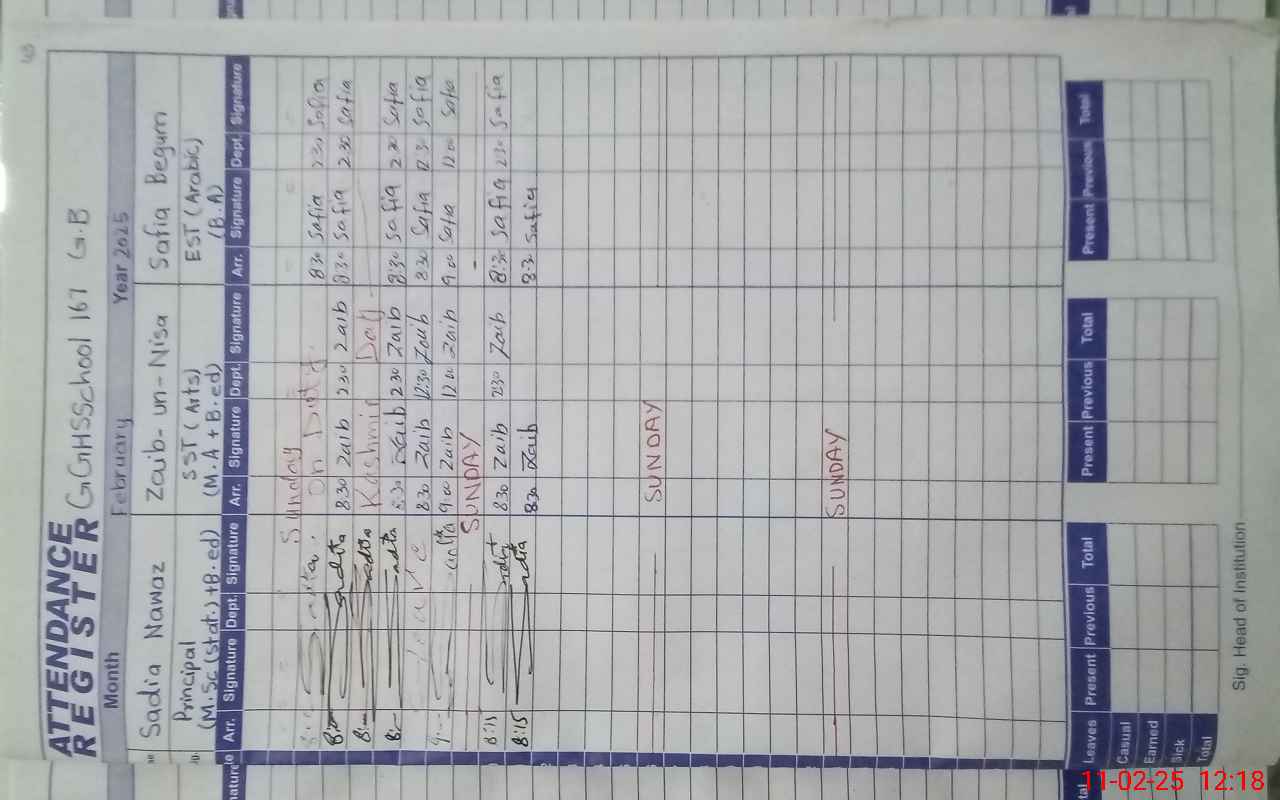 ATTENDANCE
REGISTER GGHSSchool 167 G.B
Month February Year 2025
Sadia Nawaz Zaib-un-Nisa Safia Begum
Principal SST (Arts) EST (Arabic)
(M.Sc (Stat.) + B.ed) (M.A + B.ed) (B.A)
Arr. Signature Dept. Signature Arr. Signature Dept. Signature Arr. Signature Dept. Signature
Sunday
On Duty. 8:30 Safia 2:30 Safia
8:30 Zaib 2:30 Zaib 8:30 Safia 2:30 Safia
Kashmir Day.
8:30 Zaib 2:30 Zaib 8:30 Safia 2:30 Safia
Leave 8:30 Zaib 12:30 Zaib 8:30 Safia 12:30 Safia
9:00 Zaib 12:00 Zaib 9:00 Safia 12:00 Safia
SUNDAY
8:15 8:30 Zaib 2:30 Zaib 8:30 Safia 2:30 Safia
8:15 8:30 Zaib 8:30 Safia
SUNDAY
SUNDAY
Leaves Present Previous Total Present Previous Total Present Previous Total
Casual
Earned
Sick
Total
Sig. Head of Institution
11-02-25 12:18